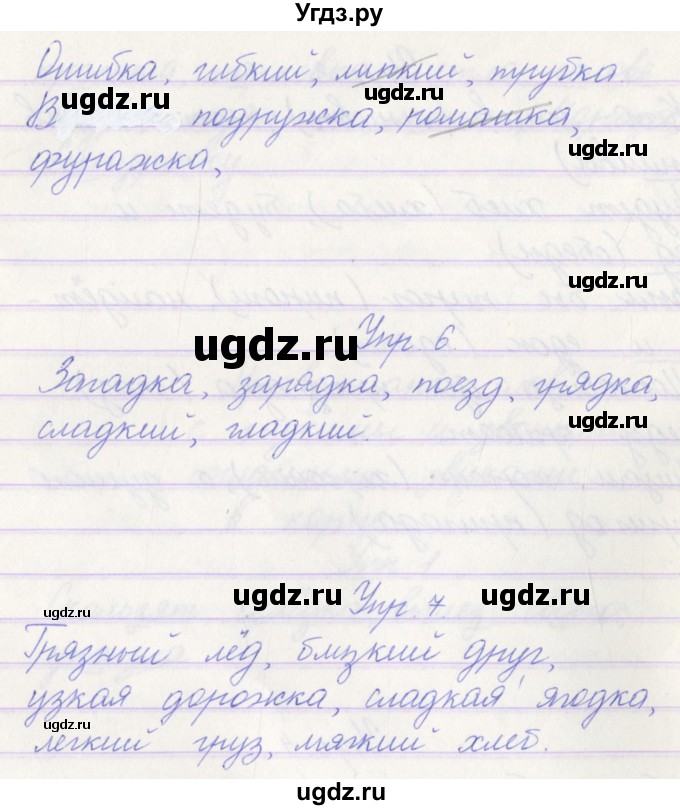 Угдз.ру
Ошибка, гибкий, липкий, трубка.
ugdz.ru ugdz.ru
В подружка, ромашка,
ugdz.ru
фуражка,
ugdz.ru
Упр. 6.
ugdz.ru
Загадка, зарядка, поезд, грядка,
ugdz.ru
сладкий, гладкий.
Упр. 7.
ugdz.ru ugdz.ru ugdz.ru
Грязный лёд, близкий друг,
узкая дорожка, сладкая ягодка,
ugdz.ru
легкий груз, мягкий хлеб.
ugdz.ru